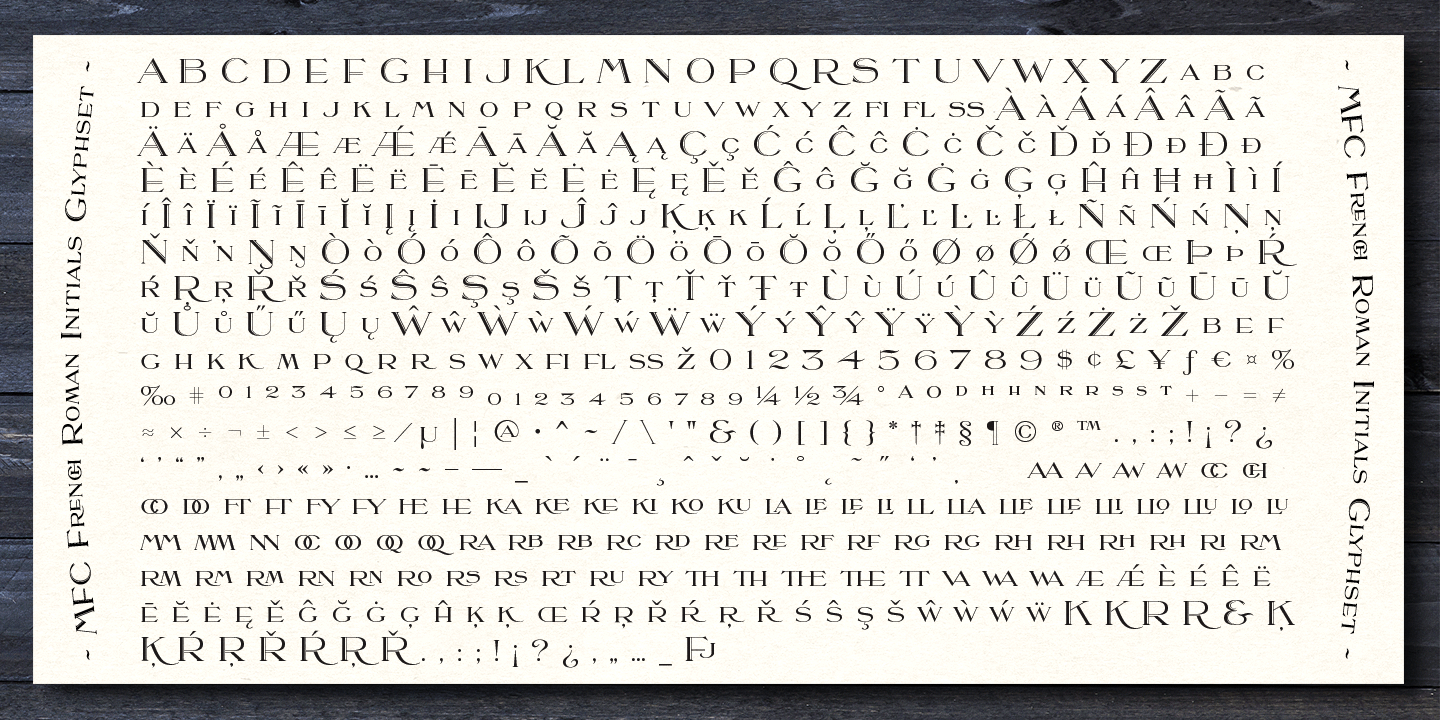 ~ MFC French Roman Initials Glyphset ~
A B C D E F G H I J K L M N O P Q R S T U V W X Y Z A B C
D E F G H I J K L M N O P Q R S T U V W X Y Z FI FL SS À à Á á Â â Ã ã
Ä ä Å å Æ æ Ǽ ǽ Ā ā Ă ă Ą ą Ç ç Ć ć Ĉ ĉ Ċ ċ Č č Ď ď Ð ð Đ đ
È è É é Ê ê Ë ë Ē ē Ĕ ĕ Ė ė Ę ę Ě ě Ĝ ĝ Ğ ğ Ġ ġ Ģ ģ Ĥ ĥ Ħ ħ Ì ì Í
í Î î Ï ï Ĩ ĩ Ī ī Ĭ ĭ Į į İ ı IJ ij Ĵ ĵ J Ķ ķ K Ĺ ĺ Ļ ļ Ľ ľ Ŀ ŀ Ł ł Ñ ñ Ń ń Ņ ņ
Ň ň ŉ Ŋ ŋ Ò ò Ó ó Ô ô Õ õ Ö ö Ō ō Ŏ ŏ Ő ő Ø ø Ǿ ǿ Œ œ Þ þ Ŕ
ŕ Ŗ ŗ Ř ř Ś ś Ŝ ŝ Ş ş Š š Ţ ţ Ť ť Ŧ ŧ Ù ù Ú ú Û û Ü ü Ũ ũ Ū ū Ŭ
ŭ Ů ů Ű ű Ų ų Ŵ ŵ Ẁ ẁ Ẃ ẃ Ẅ ẅ Ý ý Ŷ ŷ Ÿ ÿ Ỳ ỳ Ź ź Ż ż Ž B E F
G H K K M P Q R R S W X FI FL SS Ž 0 1 2 3 4 5 6 7 8 9 $ ¢ £ ¥ ƒ € ¤ %
‰ # 0 1 2 3 4 5 6 7 8 9 0 1 2 3 4 5 6 7 8 9 ¼ ½ ¾ ° A O D H H N R R S S T + − = ≠
≈ × ÷ ¬ ± < > ≤ ≥ ⁄ µ | ¦ @ • ^ ~ / \ ' " & ( ) [ ] { } * † ‡ § ¶ © ® ™ . , : ; ! ¡ ? ¿
‘ ’ “ ” ‚ „ ‹ › « » · … ~ ~ – — _ ` ´ ¨ ¯ ¸ ˆ ˇ ˘ ˙ ˚ ˛ ˜ ˝ ‘ ’ . AA AV AW AW CC CH
CO DO FT FT FY FY HE HE KA KE KE KI KO KU LA LE LE LI LL LLA LLE LLE LLI LLO LLU LO LU
MM MM NN OC OO OQ OQ RA RB RB RC RD RE RE RF RF RG RG RH RH RH RH RI RM
RM RM RM RN RN RO RS RS RT RU RY TH TH THE THE TT VA WA WA Æ Ǽ È É Ê Ë
Ē Ĕ Ė Ę Ě Ĝ Ğ Ġ Ģ Ĥ Ķ Ķ Œ Ŕ Ŗ Ř Ŕ Ŗ Ŕ Ŗ Ř Ś Ŝ Ş Š Ŵ Ẁ Ẃ Ẅ K K R R & Ķ
Ķ Ŕ Ŗ Ř Ŕ Ŗ Ř . , : ; ! ¡ ? ¿ ‚ „ … _ FJ
~ MFC French Roman Initials Glyphset ~